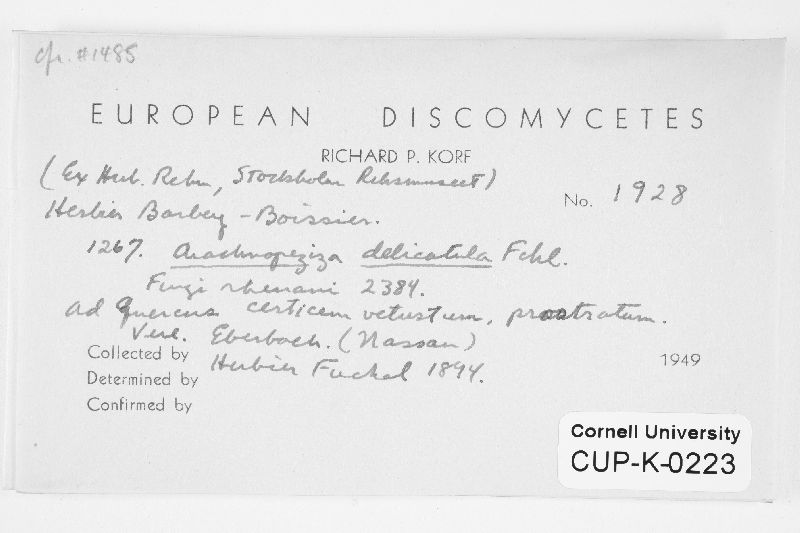 cfr. #1485
EUROPEAN DISCOMYCETES
RICHARD P. KORF
(Ex Herb. Rehm, Stockholm Riksmuseet)
No. 1928
Herbier Barbey-Boissier.
1267. Arachnopeziza delicatula Fckl.
Fungi rhenani 2384.
ad Quercus corticem vetustum, prostratum.
Vere. Eberbach. (Nassau)
Collected by
Herbier Fuckel 1894.
1949
Determined by
Confirmed by
Cornell University
CUP-K-0223